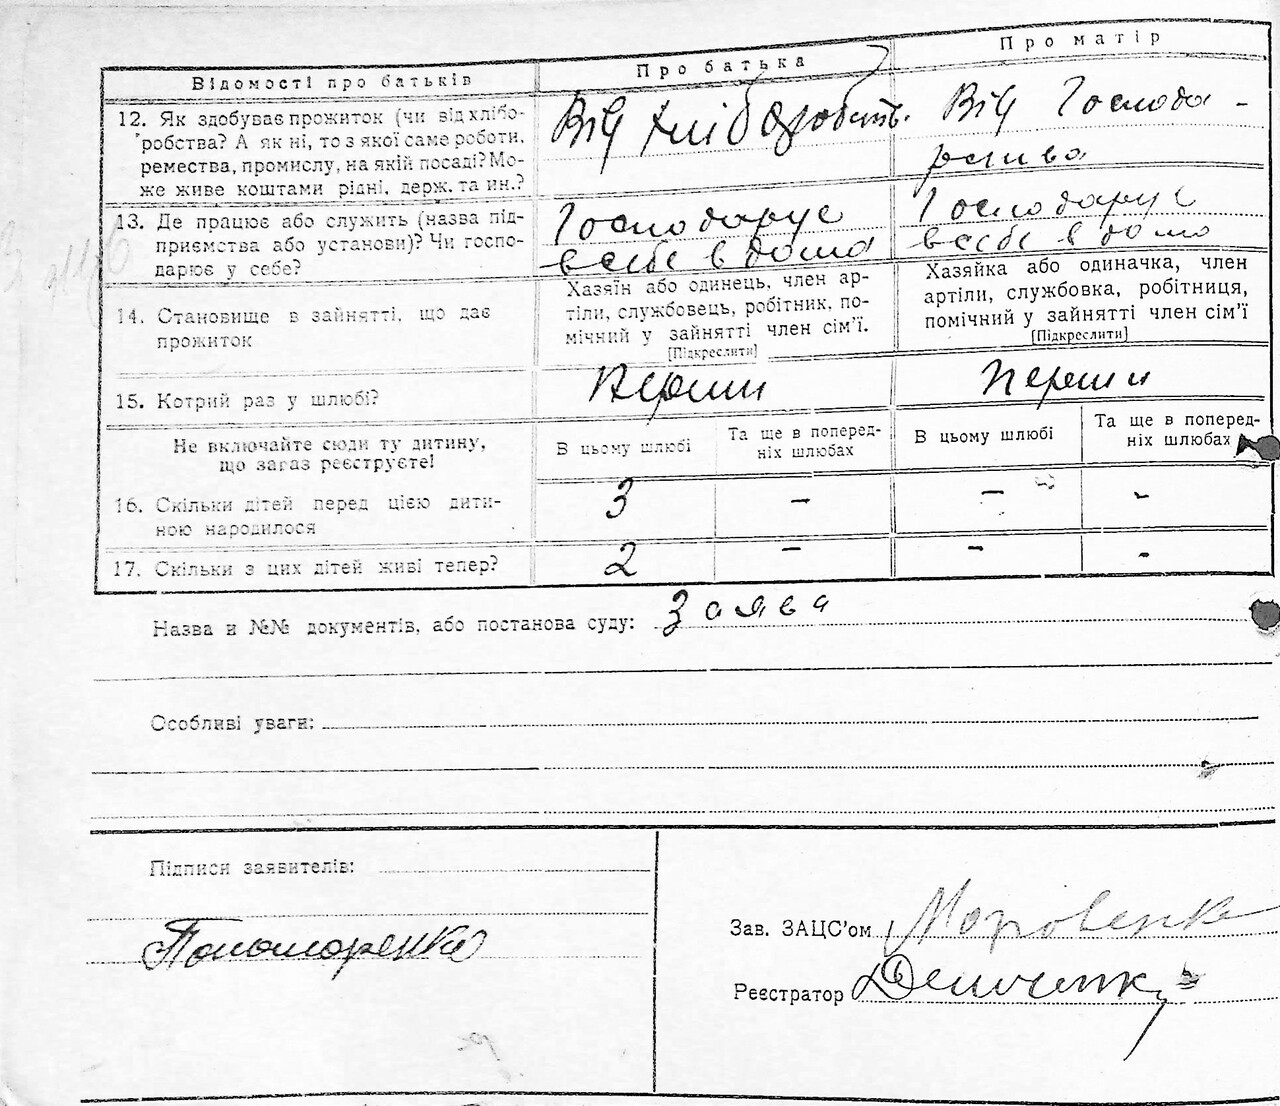 Відомості про батьків
Про батька
Про матір
12. Як здобуває прожиток (чи від хлібо-
робства? А як ні, то з якої саме роботи,
ремества, промислу, на якій посаді? Мо-
же живе коштами рідні, держ. та ин.?
Від хліборобств.
Від Господа-
рства
13. Де працює або служить (назва під-
приємства або установи)? Чи госпо-
дарює у себе?
Господарує
в себе в дома
Господарує
в себе в дома
14. Становище в зайнятті, що дає
прожиток
Хазяїн або одинець, член ар-
тілі, службовець, робітник, по-
мічний у зайнятті член сім'ї.
[Підкреслити]
Хазяйка або одиначка, член
артілі, службовка, робітниця,
помічний у зайнятті член сім'ї
[Підкреслити]
15. Котрий раз у шлюбі?
Перший
Перший
Не включайте сюди ту дитину,
що зараз реєструєте!
В цьому шлюбі
Та ще в поперед-
ніх шлюбах
В цьому шлюбі
Та ще в поперед-
ніх шлюбах
16. Скільки дітей перед цією дити-
ною народилося
3 – – -
17. Скільки з цих дітей живі тепер?
2 – – -
Назва и №№ документів, або постанова суду: Заява
Особливі уваги:
Підписи заявителів:
Пономоренко
Зав. ЗАЦС'ом
Реєстратор